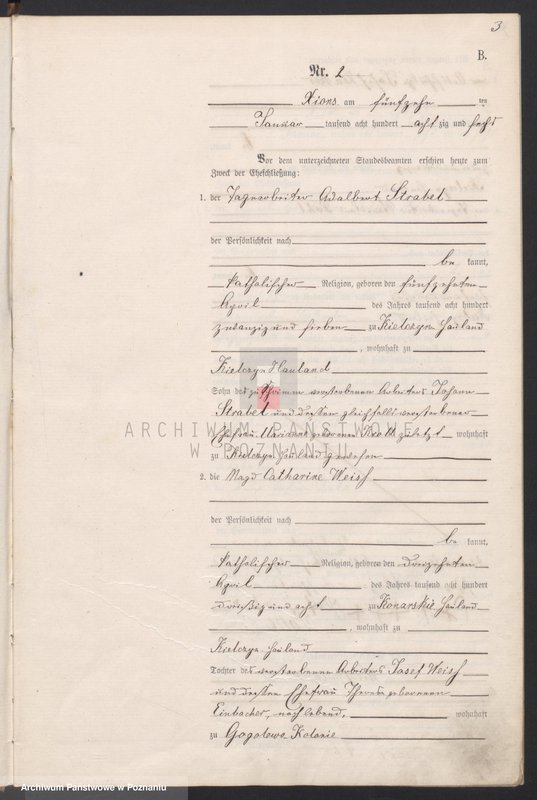 3
B.
Nr. 2
Xions am fünfzehn ten
Januar tausend acht hundert acht zig und sechs
Vor dem unterzeichneten Standesbeamten erschien heute zum
Zweck der Eheschließung:
1. der Tagearbeiter Adalbert Strabel
der Persönlichkeit nach
be kannt,
katholischer Religion, geboren den fünfzehnten
April des Jahres tausend acht hundert
zwanzig und sieben zu Kielczyn Hauland
, wohnhaft zu
Kielczyn Hauland
Sohn des zu verstorbenen Arbeiters Johann
Strabel und dessen gleichfalls verstorbener
Ehefrau Marianna geborenen zuletzt wohnhaft
ARCHIWUM PAŃSTWOWE
W POZNANIU
zu Kielczyn Hauland gewesen
2. die Magd Catharine Weiss
der Persönlichkeit nach
be kannt,
katholischer Religion, geboren den dreizehnten
April des Jahres tausend acht hundert
dreißig und acht zu Konarskie Hauland
, wohnhaft zu
Kielczyn Hauland
Tochter des verstorbenen Arbeiters Josef Weiss
und dessen Ehefrau Therese geborenen
Einbacher, noch lebend, wohnhaft
zu Gogolewo Kolonie
Archiwum Państwowe w Poznaniu